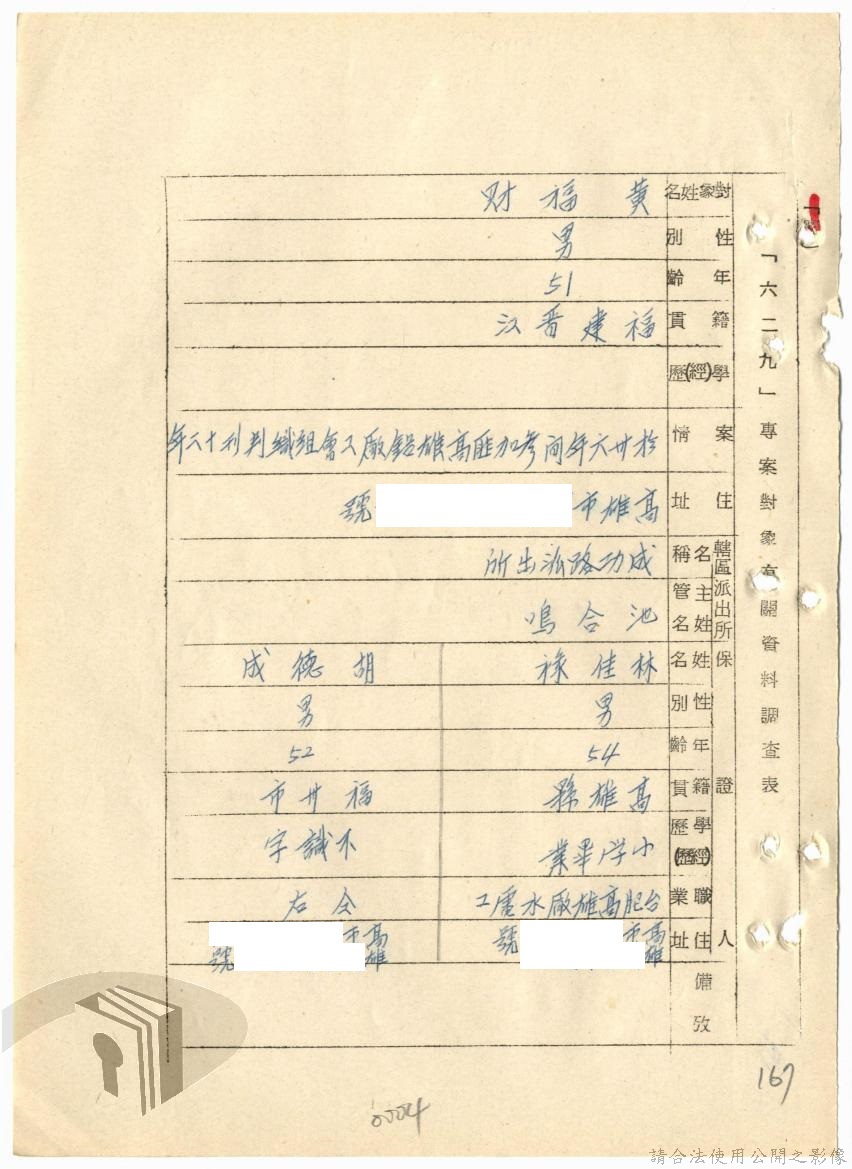 「六二九」專案對象有關資料調查表
對象姓名 黃福財
性別 男
年齡 51
籍貫 福建晋江
學(經)歷
案情 於卅六年间參加匪高雄鋁廠工會組織判刑十二年
住址 高雄市 號
轄區派出所 名稱 成功路派出所
主管姓名 池合鳴
保證人
姓名 林佳祿 胡德成
性別 男 男
年齡 54 52
籍貫 高雄縣 福州市
學歷(經歷) 小學畢業 不識字
職業 台肥高雄廠水電工 仝右
住址 高雄市 號 高雄市 號
備攷
167
0004
請合法使用公開之影像